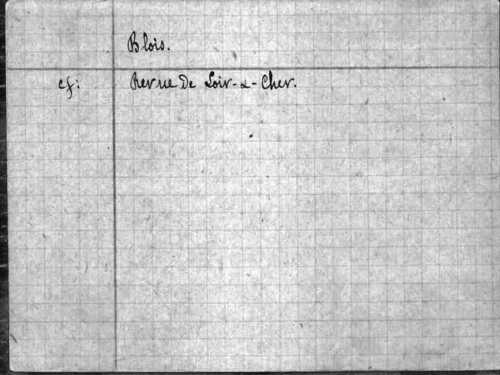 Blois.
cf: Revue de Loir-&-Cher.